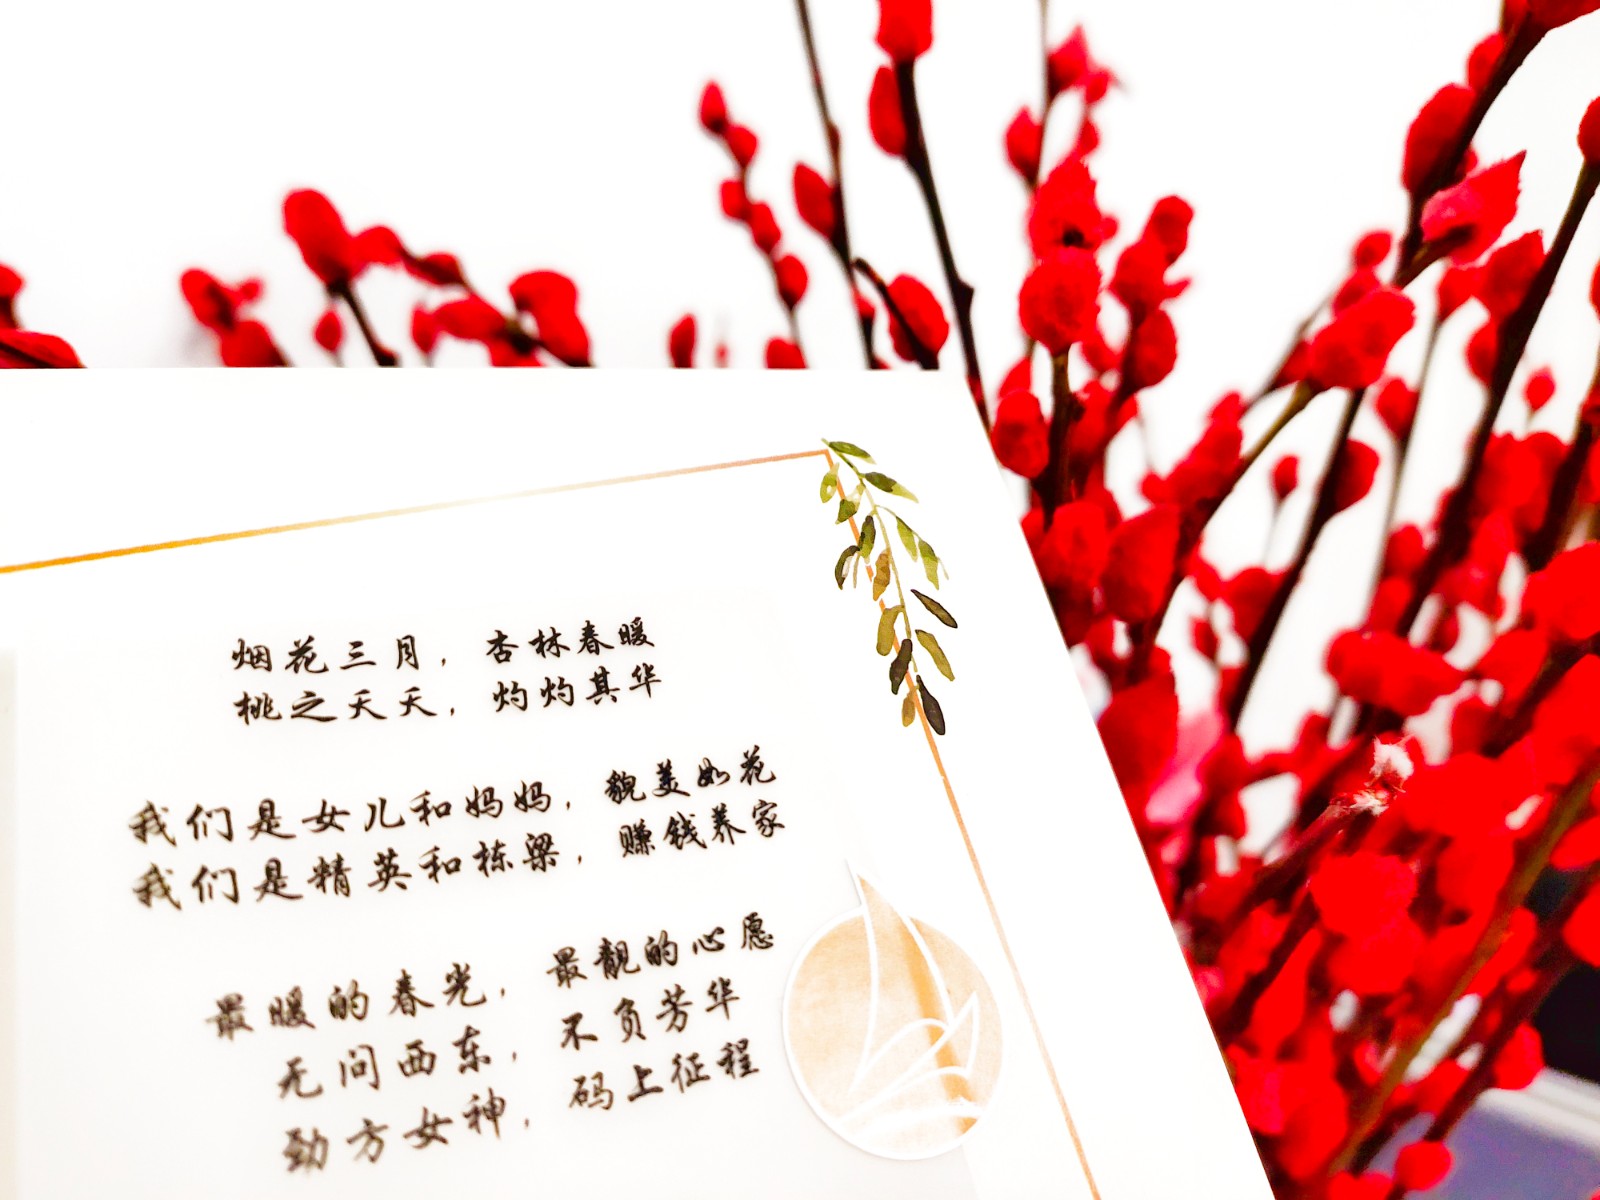 烟花三月，杏林春暖
桃之夭夭，灼灼其华
我们是女儿和妈妈，貌美如花
我们是精英和栋梁，赚钱养家
最暖的春光，最靓的心愿
无问西东，不负芳华
劲方女神，码上征程